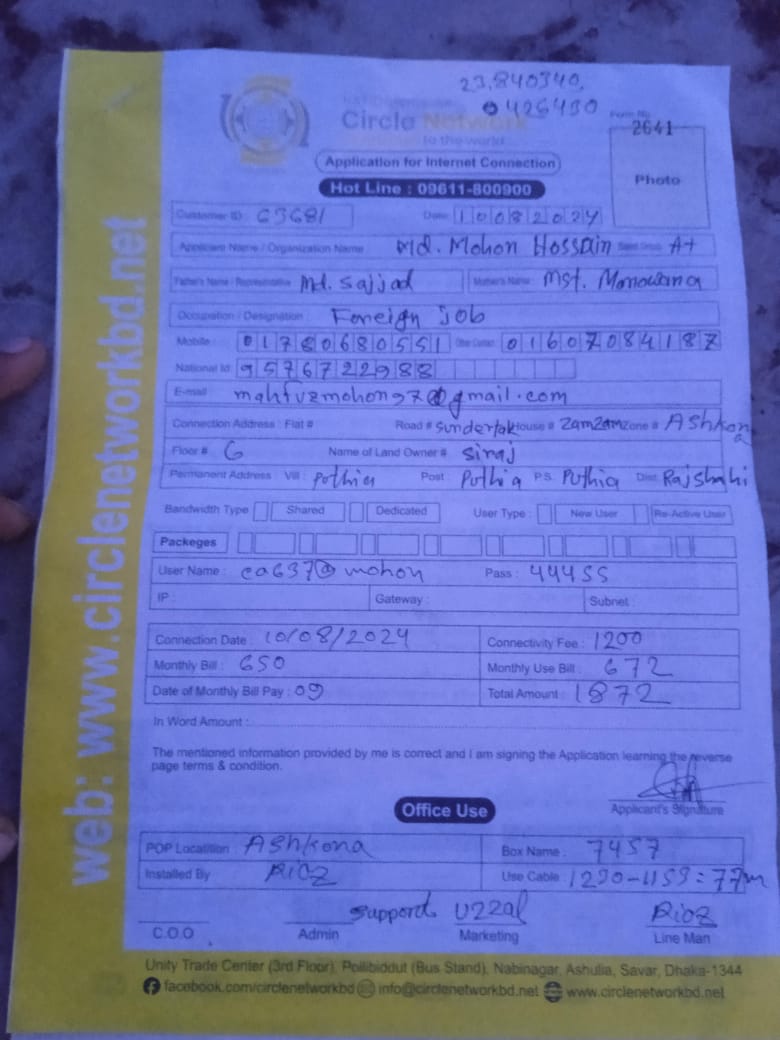 23.840340,
0426430
Circle Network
to the world
Form No
2641
Application for Internet Connection
Photo
Hot Line : 09611-800900
Customer ID : 63681 Date : 10082024
Applicant Name / Organization Name : Md. Mohon Hossain A+
Father's Name / Representative Md. Sajjad Mother's Name :
Occupation / Designation : Foreign job
Mobile : 01780680551 01607084187
National Id: 9576722988
E-mail mahfuzmohon97@gmail.com
Connection Address : Flat # Road # House # zamzam Zone # Ashkona
Floor # 6 Name of Land Owner # Siraj
Permanent Address : Vill : Pothia Post : Puthia P.S. Puthia Dist. Rajshahi
Bandwidth Type Shared Dedicated User Type : New User Re-Active User
Packeges
User Name : ca637@mohon Pass : 44455
IP : Gateway : Subnet :
Connection Date : 10/08/2024 Connectivity Fee : 1200
Monthly Bill : 650 Monthly Use Bill : 672
Date of Monthly Bill Pay : 09 Total Amount : 1872
In Word Amount :
The mentioned information provided by me is correct and I am signing the Application learning the reverse
page terms & condition.
Applicant's Signature
Office Use
POP Locatition : Ashkona Box Name : 7457
Installed By Rioz Use Cable : 1230-1153=77m
support Uzzal Rioz
C.O.O Admin Marketing Line Man
Unity Trade Center (3rd Floor), Pollibiddut (Bus Stand), Nabinagar, Ashulia, Savar, Dhaka-1344
facebook.com/circlenetworkbd info@circlenetworkbd.net www.circlenetworkbd.net
web: www.circlenetworkbd.net